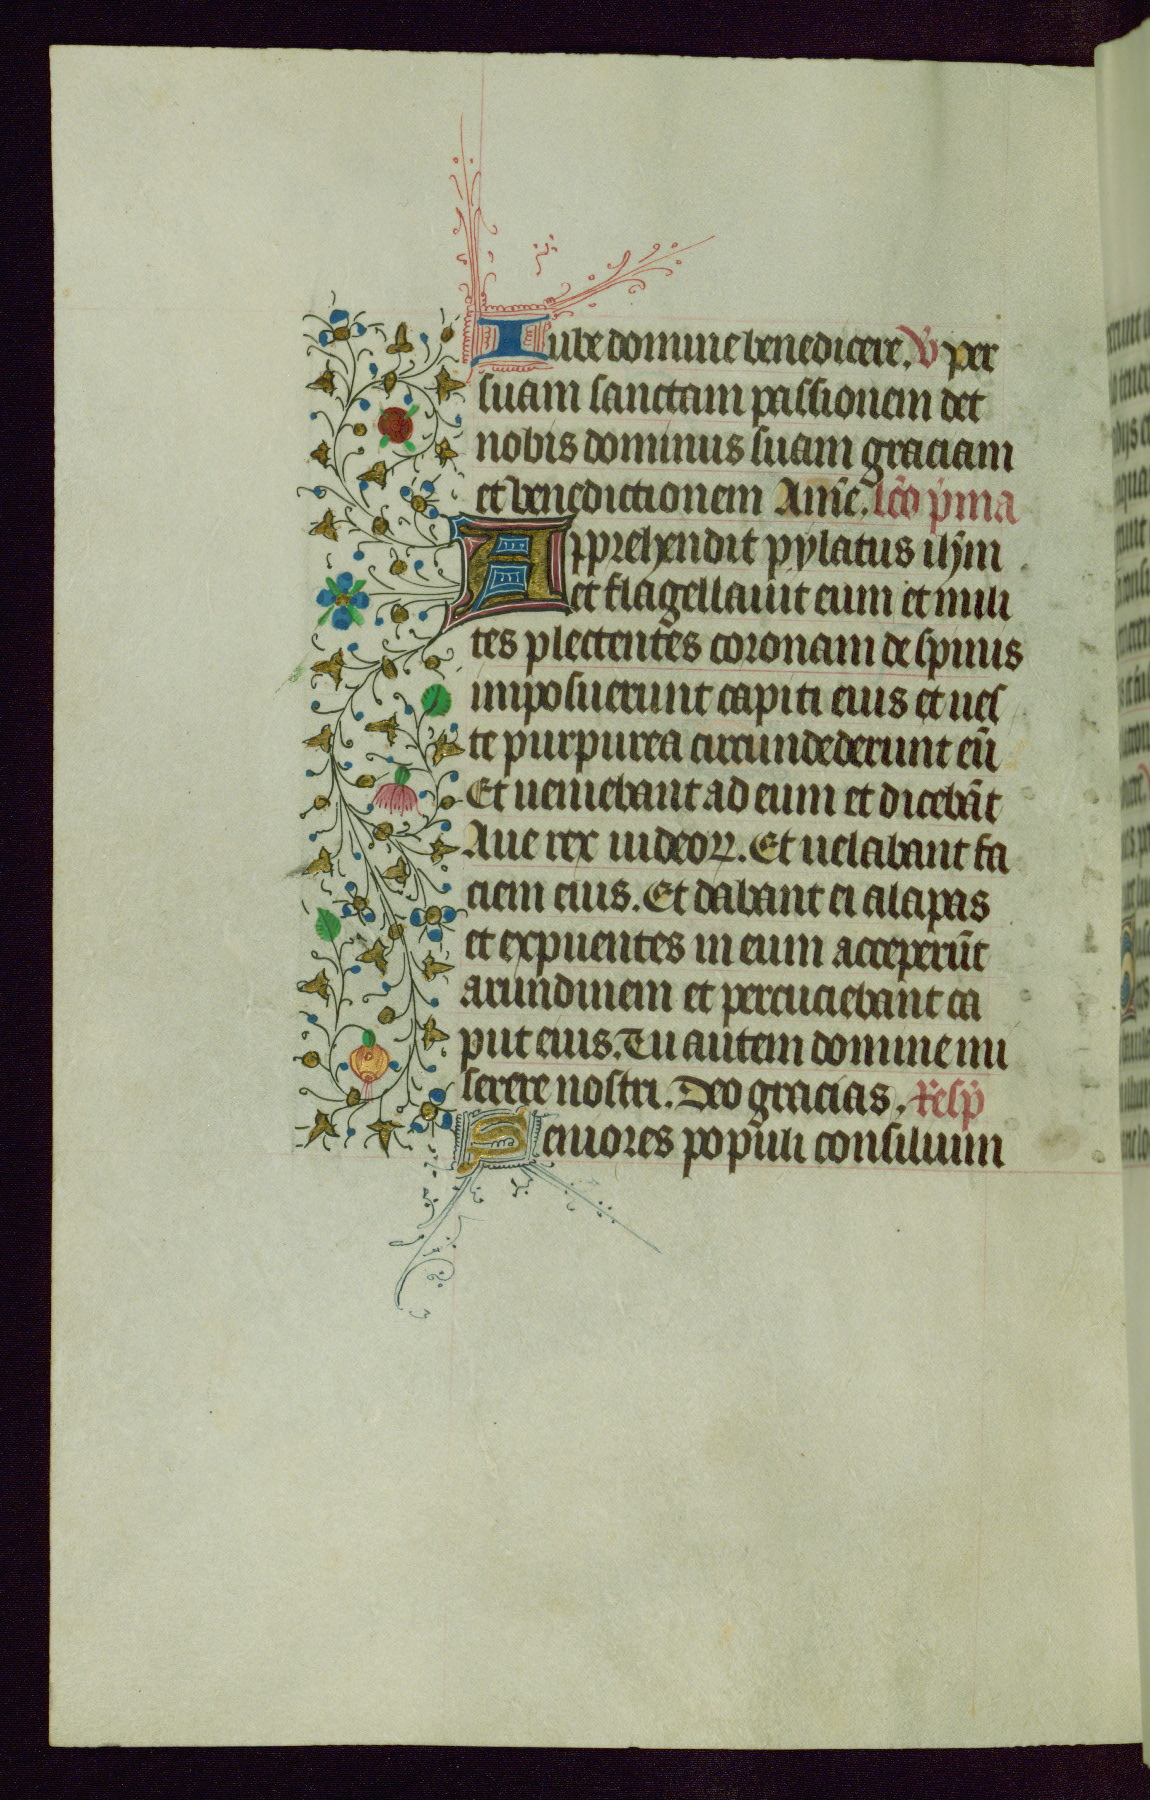 Iube domine benedicere. V per
suam sanctam passionem det
nobis dominus suam graciam
et benedictionem Amē. lc̄o p̄ma
Apprehendit pylatus ih̄m
et flagellauit eum et mili
tes plectentes coronam de spinis
imposuerunt capiti eius et ues
te purpurea circundederunt eū
Et ueniebant ad eum et dicebāt
Aue rex iudeoꝝ. Et uelabant fa
ciem eius. Et dabant ei alapas
et expuentes in eum acceperūt
arundinem et percuciebant ca
put eius. Tu autem domine mi
serere nostri. Deo gracias. Resp̄
Seniores populi consilium